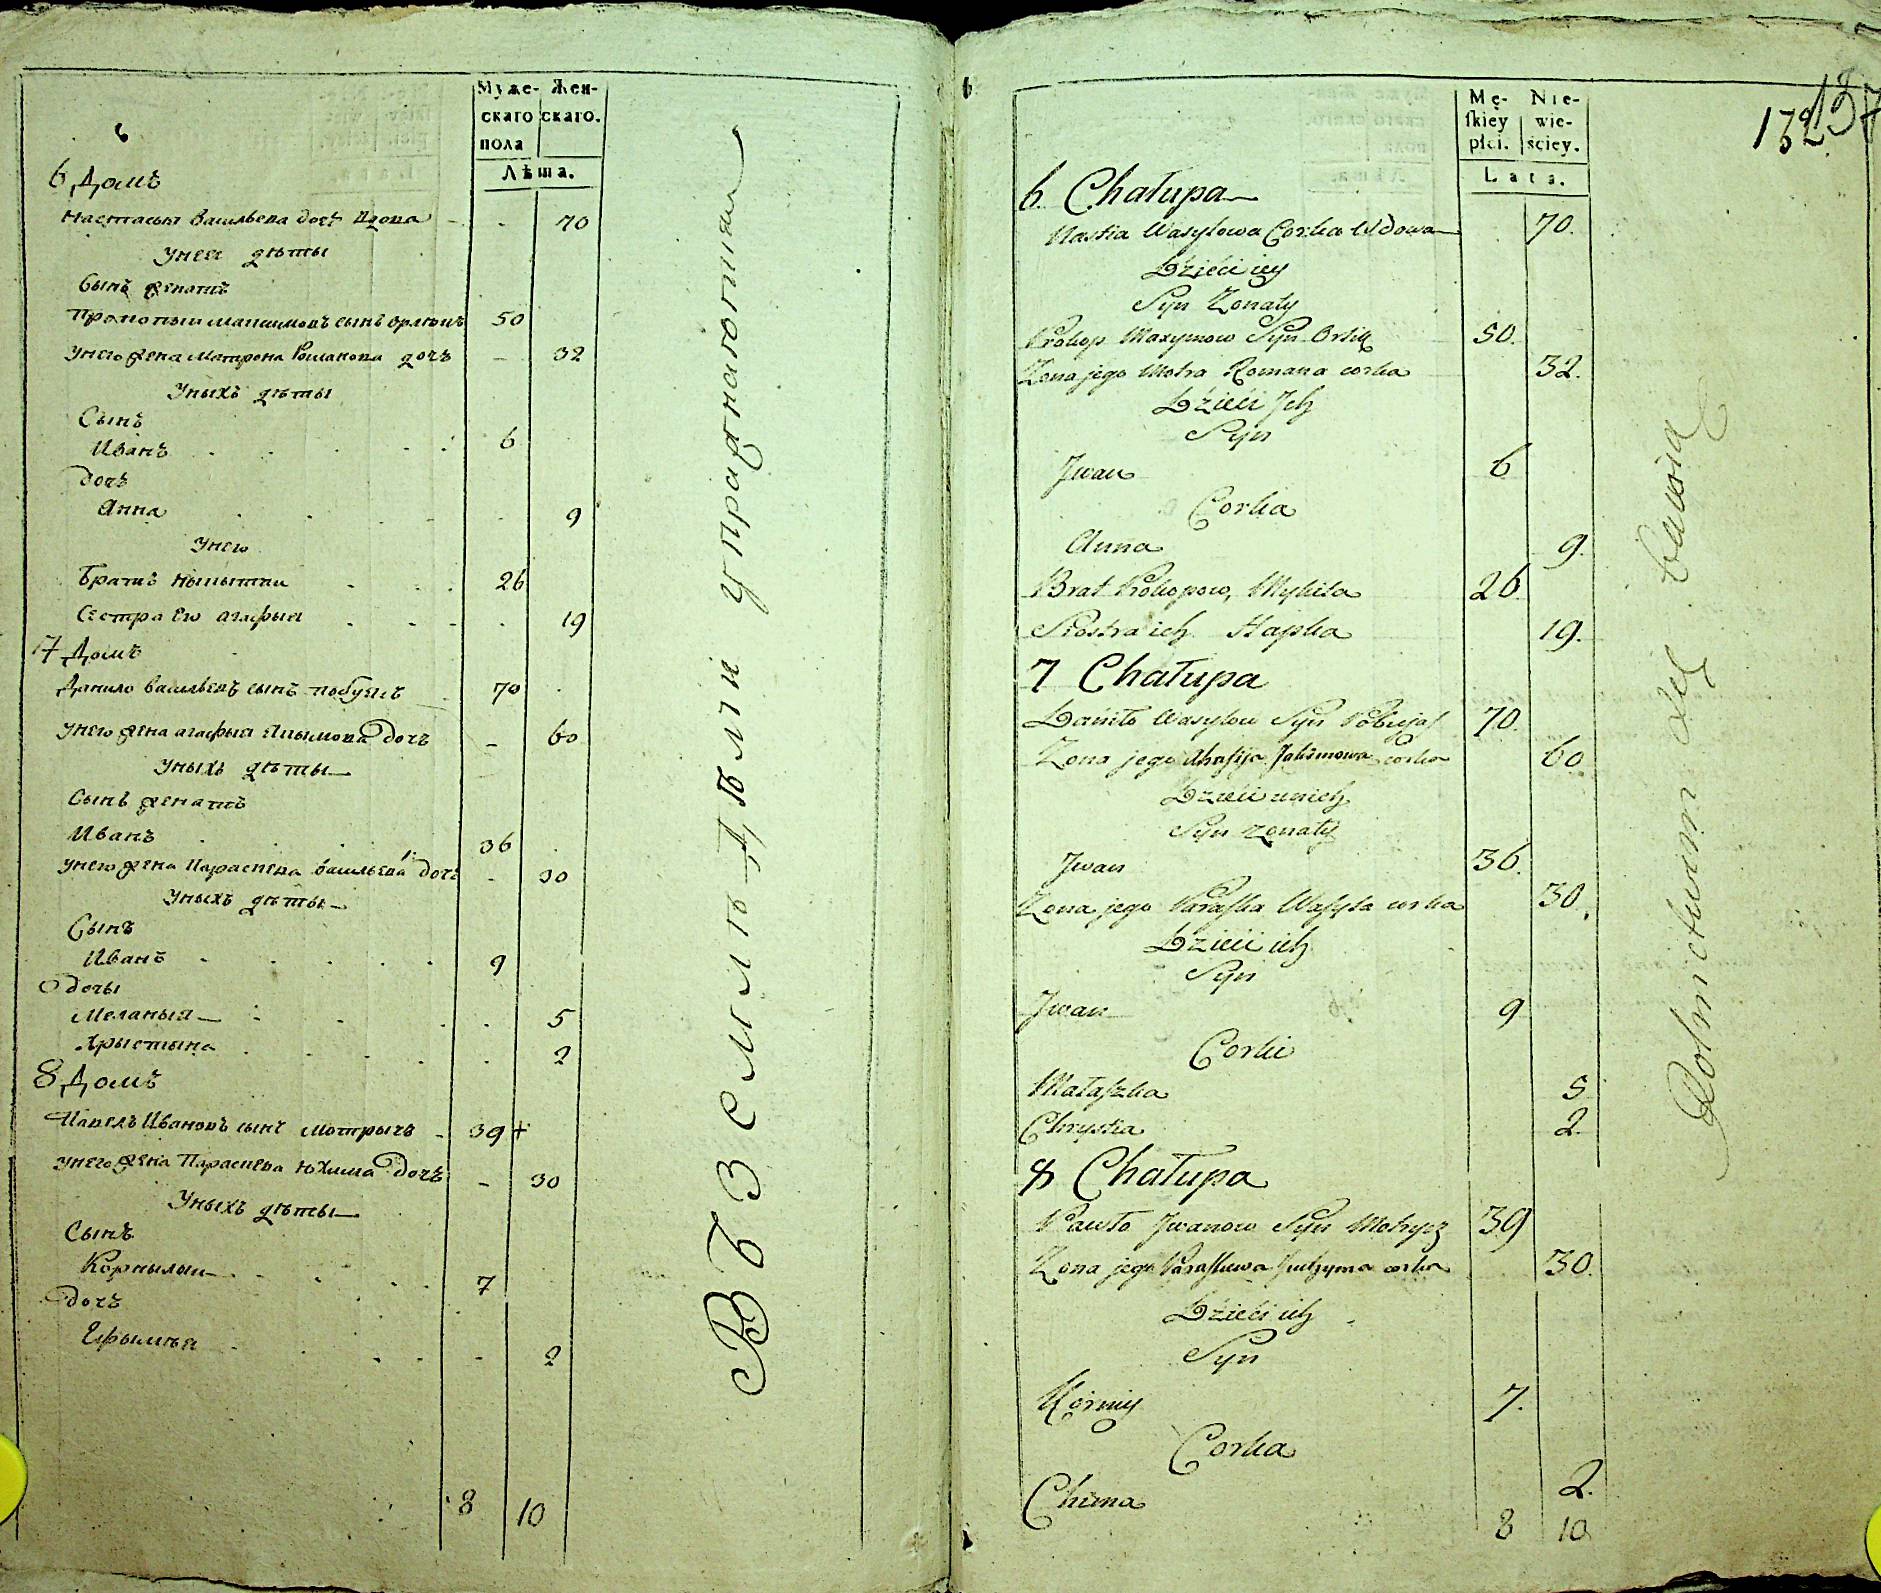 Муже- Жен-
скаго скаго.
пола
Лѣта.
6 Домъ
Настасья Васильева дочь вдова - 70
У нея дѣты
Сынъ женатъ
Прокопый Максимовъ сынъ Орлюкъ 50
У него жена Матрона Романова дочь - 32
У ныхъ дѣты
Сынъ
Иванъ 6
дочь
Анна 9
У него
Братъ Мыкытка 26
Сестра Его агафыя 19
7 Домъ
Данило Васильевъ сынъ 70
У него жена агафыя Якымова Дочь - 60
У ныхъ дѣты
Сынъ женатъ
Иванъ 36
У него жена Параскева Васильева дочь - 30
У ныхъ дѣты
Сынъ
Иванъ 9
дочы
Меланыя 5
Хрыстына 2
8 Домъ
Павелъ Ивановъ сынъ Мотрычъ - 39 +
У него жена Параскева Юхима Дочь - 30
У ныхъ дѣты
Сынъ
Корнылый 7
дочь
Ефымыя 2
8 10
В Ъ З е м л е д ѣ л і и упражнаютца
Mę- Nie-
skiey wie-
płci. ściey.
Lata.
132
137
6 Chałupa
Nastia Wasylowa Corka Wdowa 70.
Dzieci iey
Syn Zonaty
Prokop Maxymow Syn Orluk 50.
Zona jego Motra Romana corka 32.
Dzieci Jch
Syn
Jwan 6
Corka
Anna 9.
Brat Prokopow, Mykita 26
Siostra ich Hapka 19.
7 Chałupa
Daniło Wasylow Syn 70.
Zona jego Ahafija Jakimowa corka 60
Dzieci u nich
Syn zonaty
Jwan 36.
Zona jego Paraska Wasyla corka 30.
Dzieci ich
Syn
Jwan 9
Corki
Małaszka 5
Chrystia 2.
8 Chałupa
Pawło Jwanow Syn Motrycz 39
Zona jego Paraskewa Juchyma corka 30.
Dzieci ich
Syn
Korniy 7.
Corka
Chima 2.
8 10
Rolnictwem się bawią